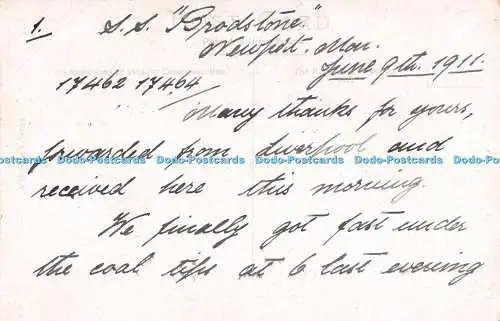 1. S.S. "Brodstone."
Newport. Mon.
June 9th. 1911.
17462 17464
Many thanks for yours,
forwarded from Liverpool and
Dodo-Postcards Dodo-Postcards Dodo-Postcards Dodo-Postcards Dodo-Postcards Dodo-Postcards
received here this morning.
We finally got fast under
the coal tips at 6 last evening